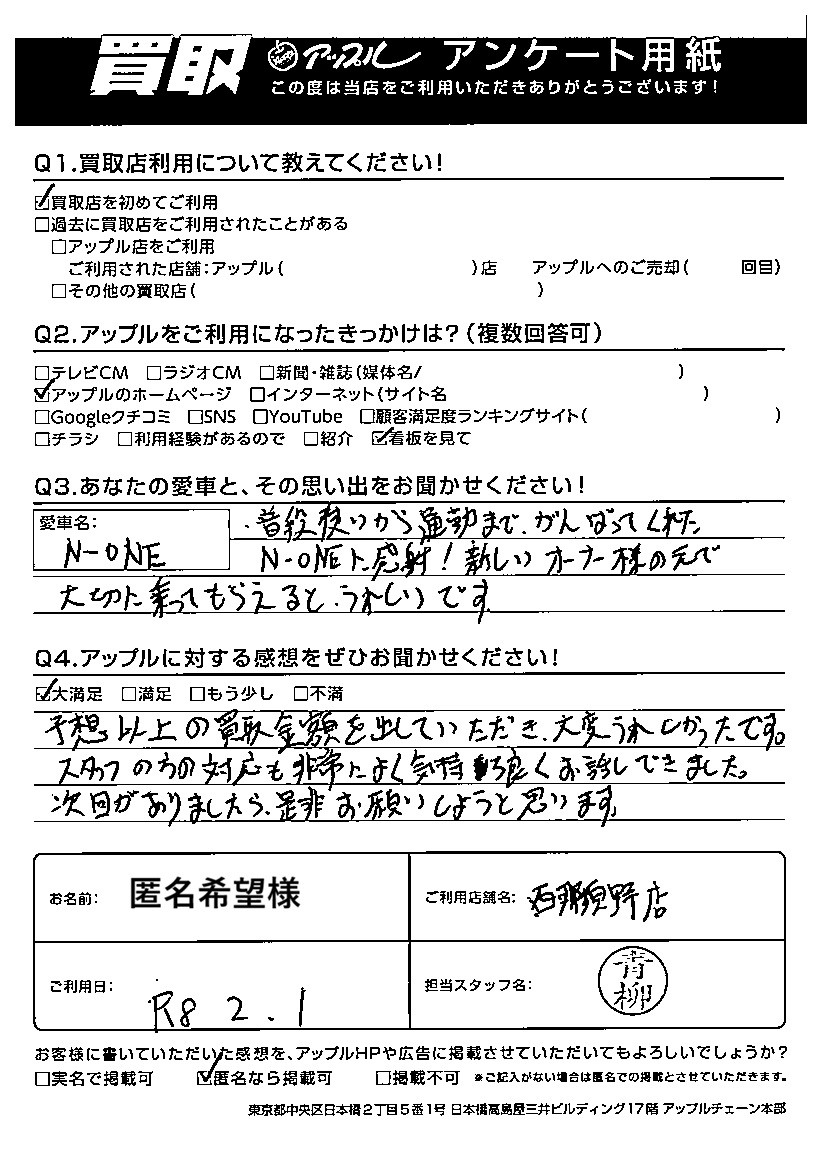 買取 アップル アンケート用紙
この度は当店をご利用いただきありがとうございます!
Q1.買取店利用について教えてください!
☑買取店を初めてご利用
□過去に買取店をご利用されたことがある
□アップル店をご利用
ご利用された店舗:アップル( )店 アップルへのご売却( 回目)
□その他の買取店( )
Q2.アップルをご利用になったきっかけは?(複数回答可)
□テレビCM □ラジオCM □新聞・雑誌(媒体名/ )
☑アップルのホームページ □インターネット(サイト名 )
□Googleクチコミ □SNS □YouTube □顧客満足度ランキングサイト( )
□チラシ □利用経験があるので □紹介 ☑看板を見て
Q3.あなたの愛車と、その思い出をお聞かせください!
愛車名: N-ONE
・普段使いから運動まで、がんばってくれた
N-ONEに感射!新しいオーナー様の元で
大切に乗ってもらえると、うれしいです。
Q4.アップルに対する感想をぜひお聞かせください!
☑大満足 □満足 □もう少し □不満
予想以上の買取金額を出していただき、大変うれしかったです。
スタッフの方の対応も非常によく気持ち良くお話しできました。
次回がありましたら、是非お願いしようと思います。
お名前: 匿名希望様 ご利用店舗名: 西那須野店
ご利用日: R8 2.1 担当スタッフ名: 青柳
お客様に書いていただいた感想を、アップルHPや広告に掲載させていただいてもよろしいでしょうか?
□実名で掲載可 ☑匿名なら掲載可 □掲載不可 ※ご記入がない場合は匿名での掲載とさせていただきます。
東京都中央区日本橋2丁目5番1号 日本橋髙島屋三井ビルディング17階 アップルチェーン本部